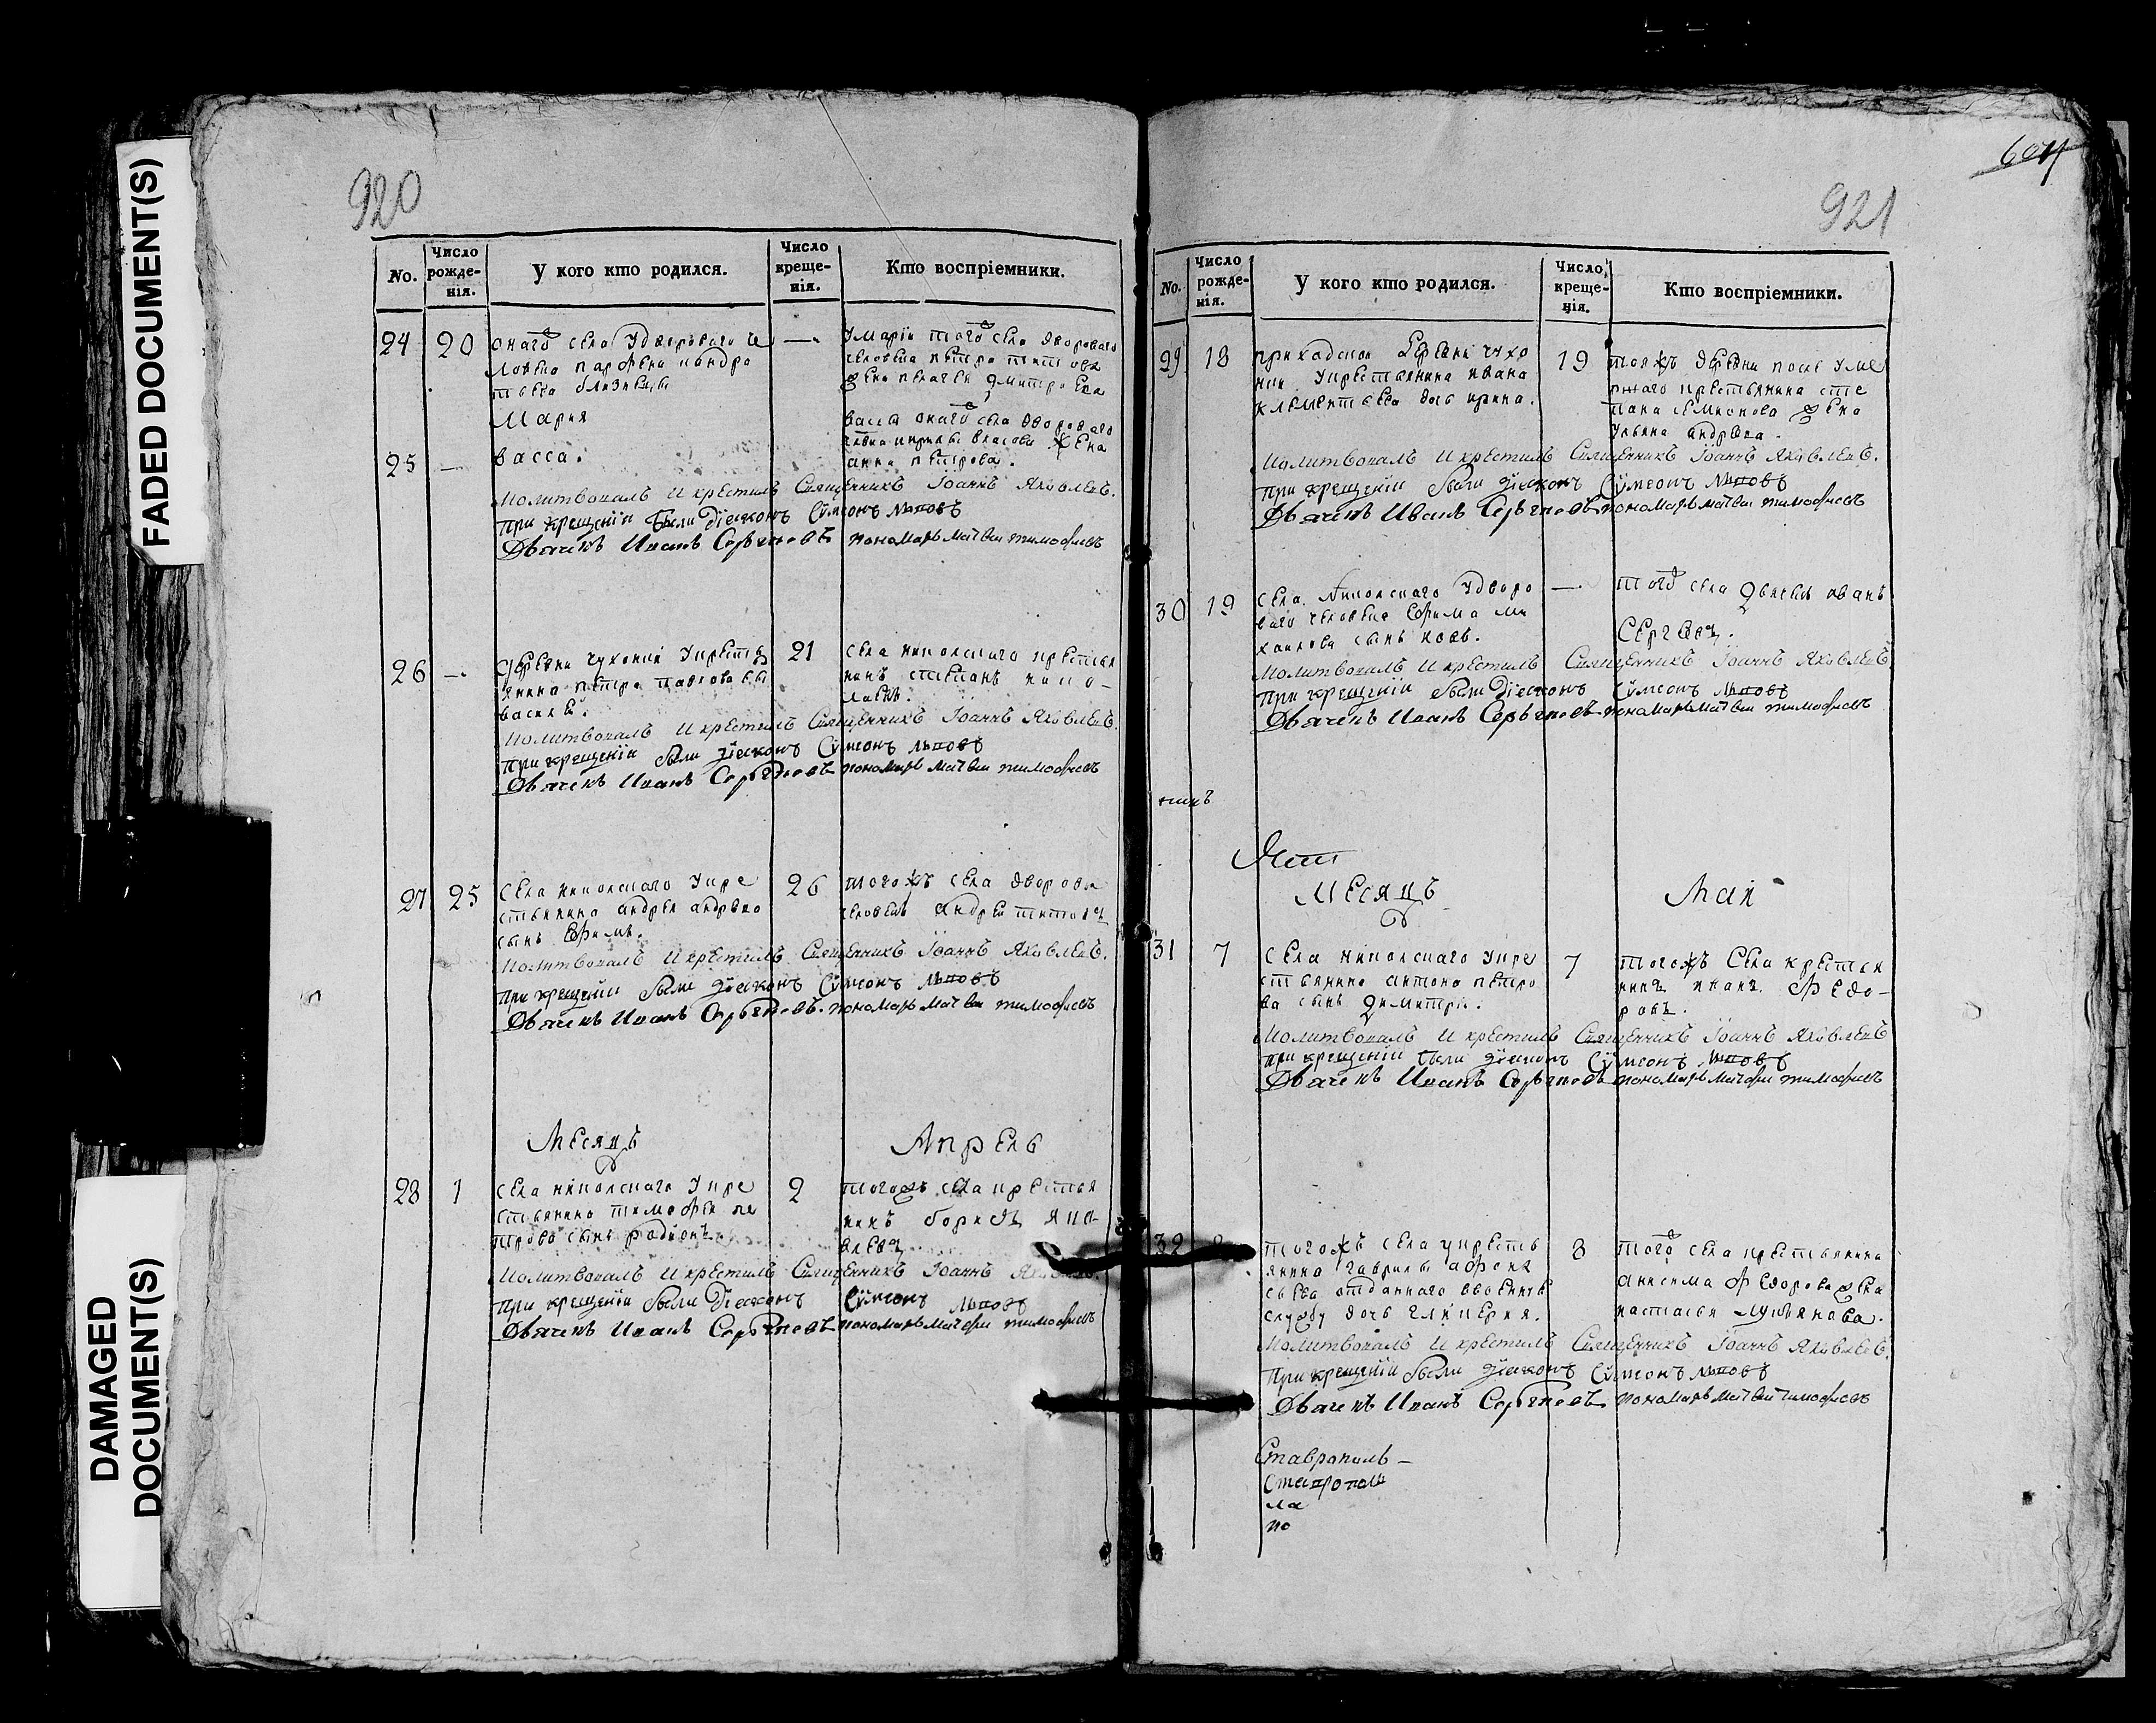 FADED DOCUMENT(S)
DAMAGED
DOCUMENT(S)
920
No.
Число
рожде-
нія.
У кого кто родился.
Число
креще-
нія.
Кто воспріемники.
24 20
онаго села удвороваго че
ловека парфена кандра
тьева близнецы
Мария
—
Умаріи того села двороваго
человека петра титова
жена пелагея дмитреева
25 —
васса.
васы онаго села двороваго
члвка кирилы власова жена
анна петрова.
Молитвовалъ и крестилъ Священникъ Іоаннъ Яковлевъ.
При крещеніи были Діаконъ Сѵмеонъ Львовъ
Дьячекъ Иванъ Сергеевъ пономарь матвеи тимофеевъ
26 —
деревни чухонки укресть
янина петра павлова сы
василей.
21
села никольского крестья
нинъ степанъ
Молитвовалъ и крестилъ Священникъ Іоаннъ Яковлевъ.
При крещеніи были діаконъ Сѵмеонъ Львовъ
Дьячекъ Иванъ Сергеевъ пономарь матвеи тимофеевъ
27 25
села никольского укре
стьянина андрея андреева
сынъ Ефимъ.
26
тогожъ села дворовы
человекъ андреи титовъ
Молитвовалъ и крестилъ Священникъ Іоаннъ Яковлевъ.
При крещеніи были діаконъ Сѵмеонъ Львовъ
Дьячекъ Иванъ Сергеевъ. пономарь матвеи тимофеевъ
Месяцъ Апрель
28 1
села никольского укре
стьянина тимофея пе
трова сынъ родионъ.
2
тогожъ села крестья
нинъ борисъ яко-
влевъ
Молитвовалъ и крестилъ Священникъ Іоаннъ
При крещеніи были Діаконъ Сѵмеонъ Львовъ
Дьячекъ Иванъ Сергеевъ пономарь матфеи тимофеевъ
604
921
No.
Число
рожде-
нія.
У кого кто родился.
Число
креще-
нія.
Кто воспріемники.
29 18
приходской деревни чухо
нки укрестьянина ивана
клементьева дочь ирина.
19
тояжъ деревни после уме
ршаго крестьянина сте
пана семионова жена
Ульяна андреева.
Молитвовалъ и крестилъ Священникъ Іоаннъ Яковлевъ.
При крещеніи были діаконъ Сѵмеонъ Львовъ
Дьячекъ Иванъ Сергеевъ пономарь матвеи тимофеевъ
30 19
села Никольского удворо
ваго человека Ефима ми
хаилова сынъ яовъ.
—
того села дьячекъ иванъ
Сергеевъ.
Молитвовалъ и крестилъ Священникъ Іоаннъ Яковлевъ
При крещеніи были Діаконъ Сѵмеонъ Львовъ
Дьячекъ Иванъ Сергеевъ пономарь матвеи тимофеевъ
Месяцъ Маи
31 7
села никольскаго укре
стьянина антона петро
ва сынъ димитріи.
7
тогожъ Села крестья
нинъ иванъ Федо-
ровъ.
Молитвовалъ и крестилъ Священникъ Іоаннъ Яковлевъ
При крещеніи были діаконъ Сѵмеонъ Львовъ
Дьячекъ Иванъ Сергеевъ пономарь матфеи тимофеевъ
32
тогожъ села укресть
янина гаврилы афона
сьева отданного ввоенную
службу дочь гликерия.
8
того села крестьянина
анисима Федорова жена
настасья лукьянова.
Молитвовалъ и крестилъ Священникъ Іоаннъ Яковлевъ.
При крещеніи были діаконъ Сѵмеонъ Львовъ
Дьячекъ Иванъ Сергеевъ. пономарь матвеи тимофеевъ
Ставрополь —
ла
по